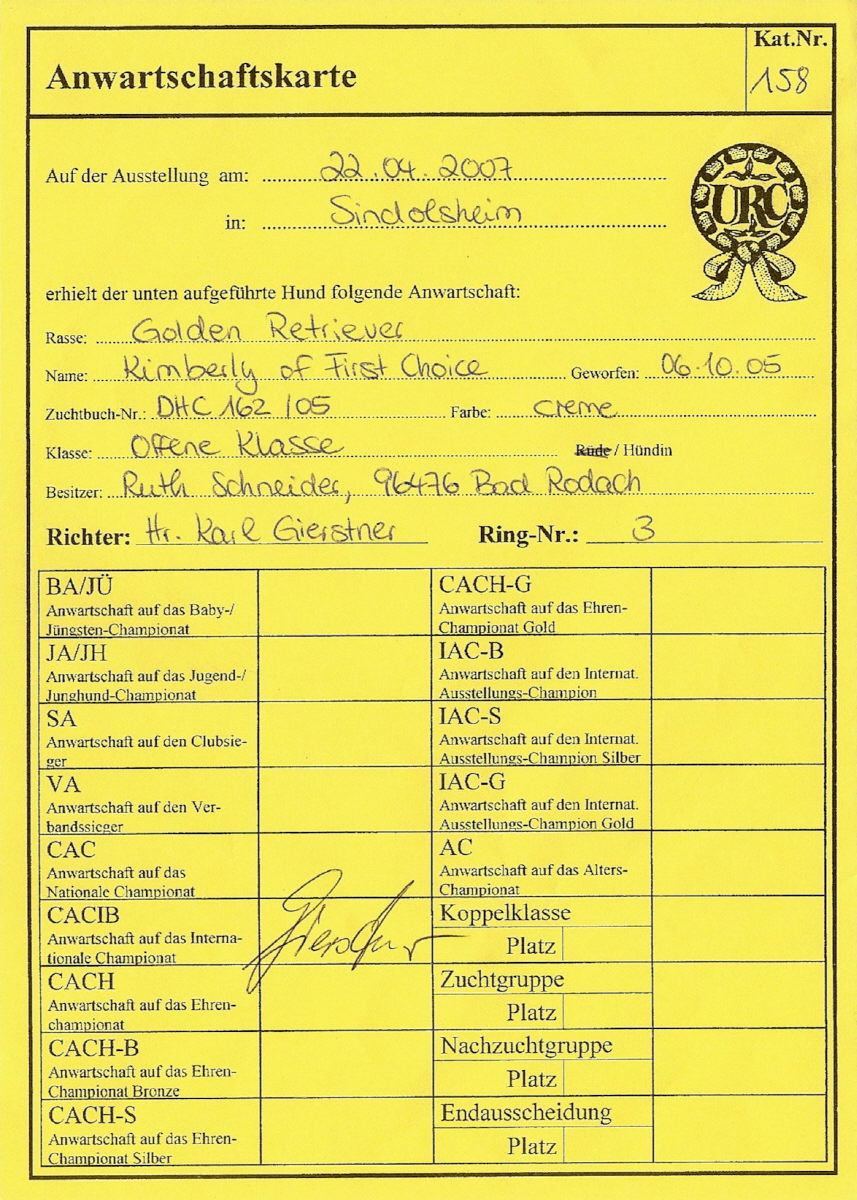 Anwartschaftskarte
Kat.Nr.
158
Auf der Ausstellung am: 22.04.2007
in: Sindolsheim
URC
erhielt der unten aufgeführte Hund folgende Anwartschaft:
Rasse: Golden Retriever
Name: Kimberly of First Choice Geworfen: 06.10.05
Zuchtbuch-Nr.: DHC 162/05 Farbe: creme
Klasse: Offene Klasse Rüde / Hündin
Besitzer: Ruth Schneider, 96476 Bad Rodach
Richter: Hr. Karl Gierstner Ring-Nr.: 3
BA/JÜ
Anwartschaft auf das Baby-/
Jüngsten-Championat
JA/JH
Anwartschaft auf das Jugend-/
Junghund-Championat
SA
Anwartschaft auf den Clubsie-
ger
VA
Anwartschaft auf den Ver-
bandssieger
CAC
Anwartschaft auf das
Nationale Championat
CACIB
Anwartschaft auf das Interna-
tionale Championat
Gierstner
CACH
Anwartschaft auf das Ehren-
championat
CACH-B
Anwartschaft auf das Ehren-
Championat Bronze
CACH-S
Anwartschaft auf das Ehren-
Championat Silber
CACH-G
Anwartschaft auf das Ehren-
Championat Gold
IAC-B
Anwartschaft auf den Internat.
Ausstellungs-Champion
IAC-S
Anwartschaft auf den Internat.
Ausstellungs-Champion Silber
IAC-G
Anwartschaft auf den Internat.
Ausstellungs-Champion Gold
AC
Anwartschaft auf das Alters-
Championat
Koppelklasse
Platz
Zuchtgruppe
Platz
Nachzuchtgruppe
Platz
Endausscheidung
Platz